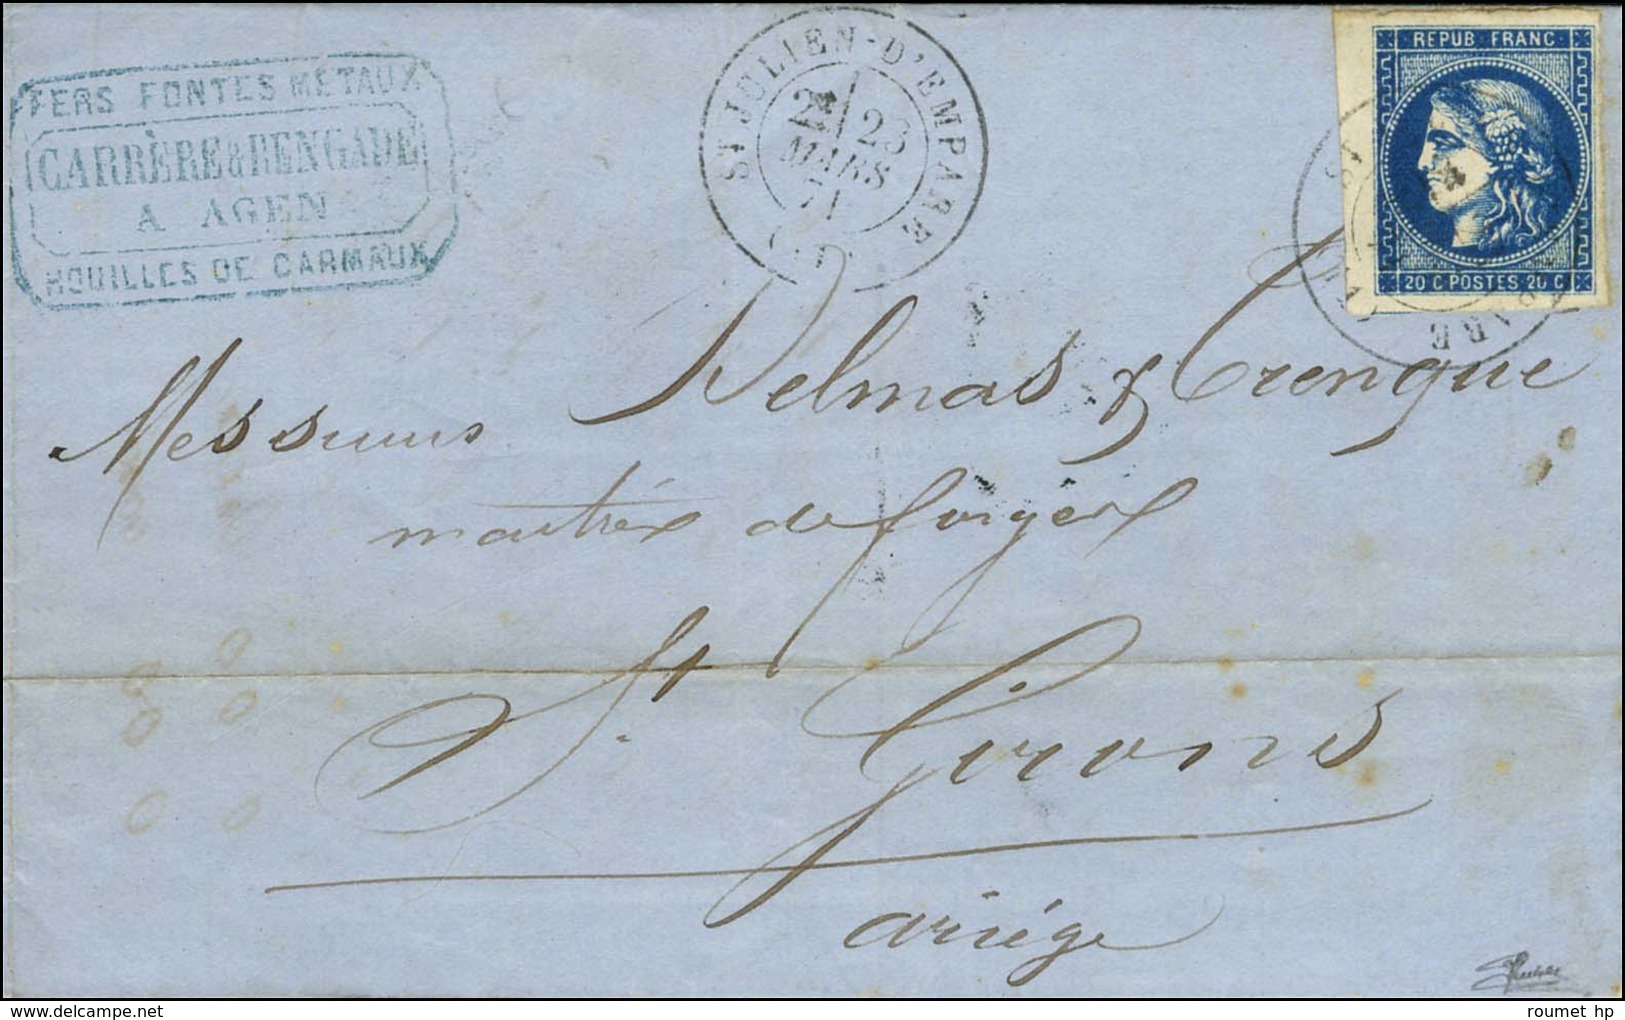 FERS FONTES METAUX
CARRÈRE & RENGADE
A AGEN
HOUILLES DE CARMAUX
ST JULIEN-D'EMPARE
23
MARS
71
REPUB FRANC
20 C POSTES 20 C
Messieurs Delmas & Trengue
maitres de forges
St Girons
ariége
roumet hp